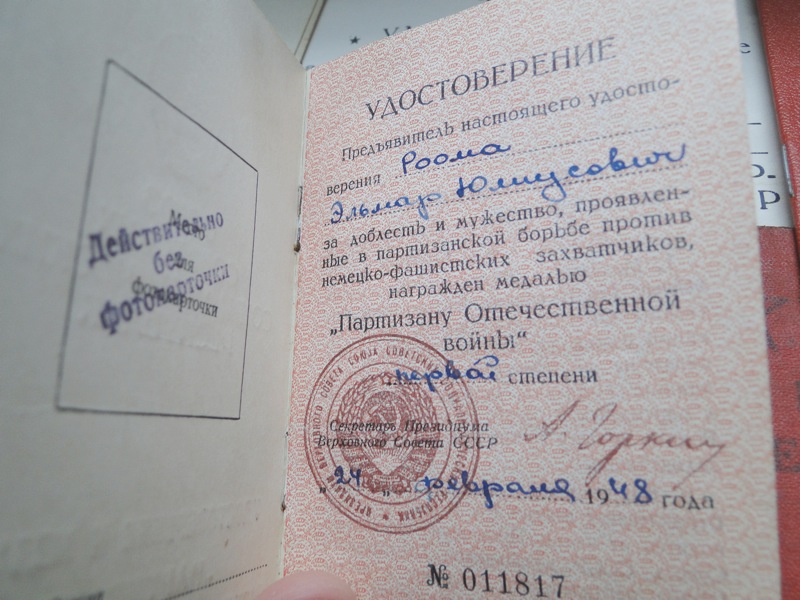 Действительно
без
фотокарточки
Место
для
фотокарточки
УДОСТОВЕРЕНИЕ
Предъявитель настоящего удосто-
верения Роома
Эльмар Юлиусович
за доблесть и мужество, проявлен-
ные в партизанской борьбе против
немецко-фашистских захватчиков,
награжден медалью
„Партизану Отечественной
войны“
первой степени
Секретарь Президиума
Верховного Совета СССР
А. Горкин
„24„ февраля 1948 года
№ 011817